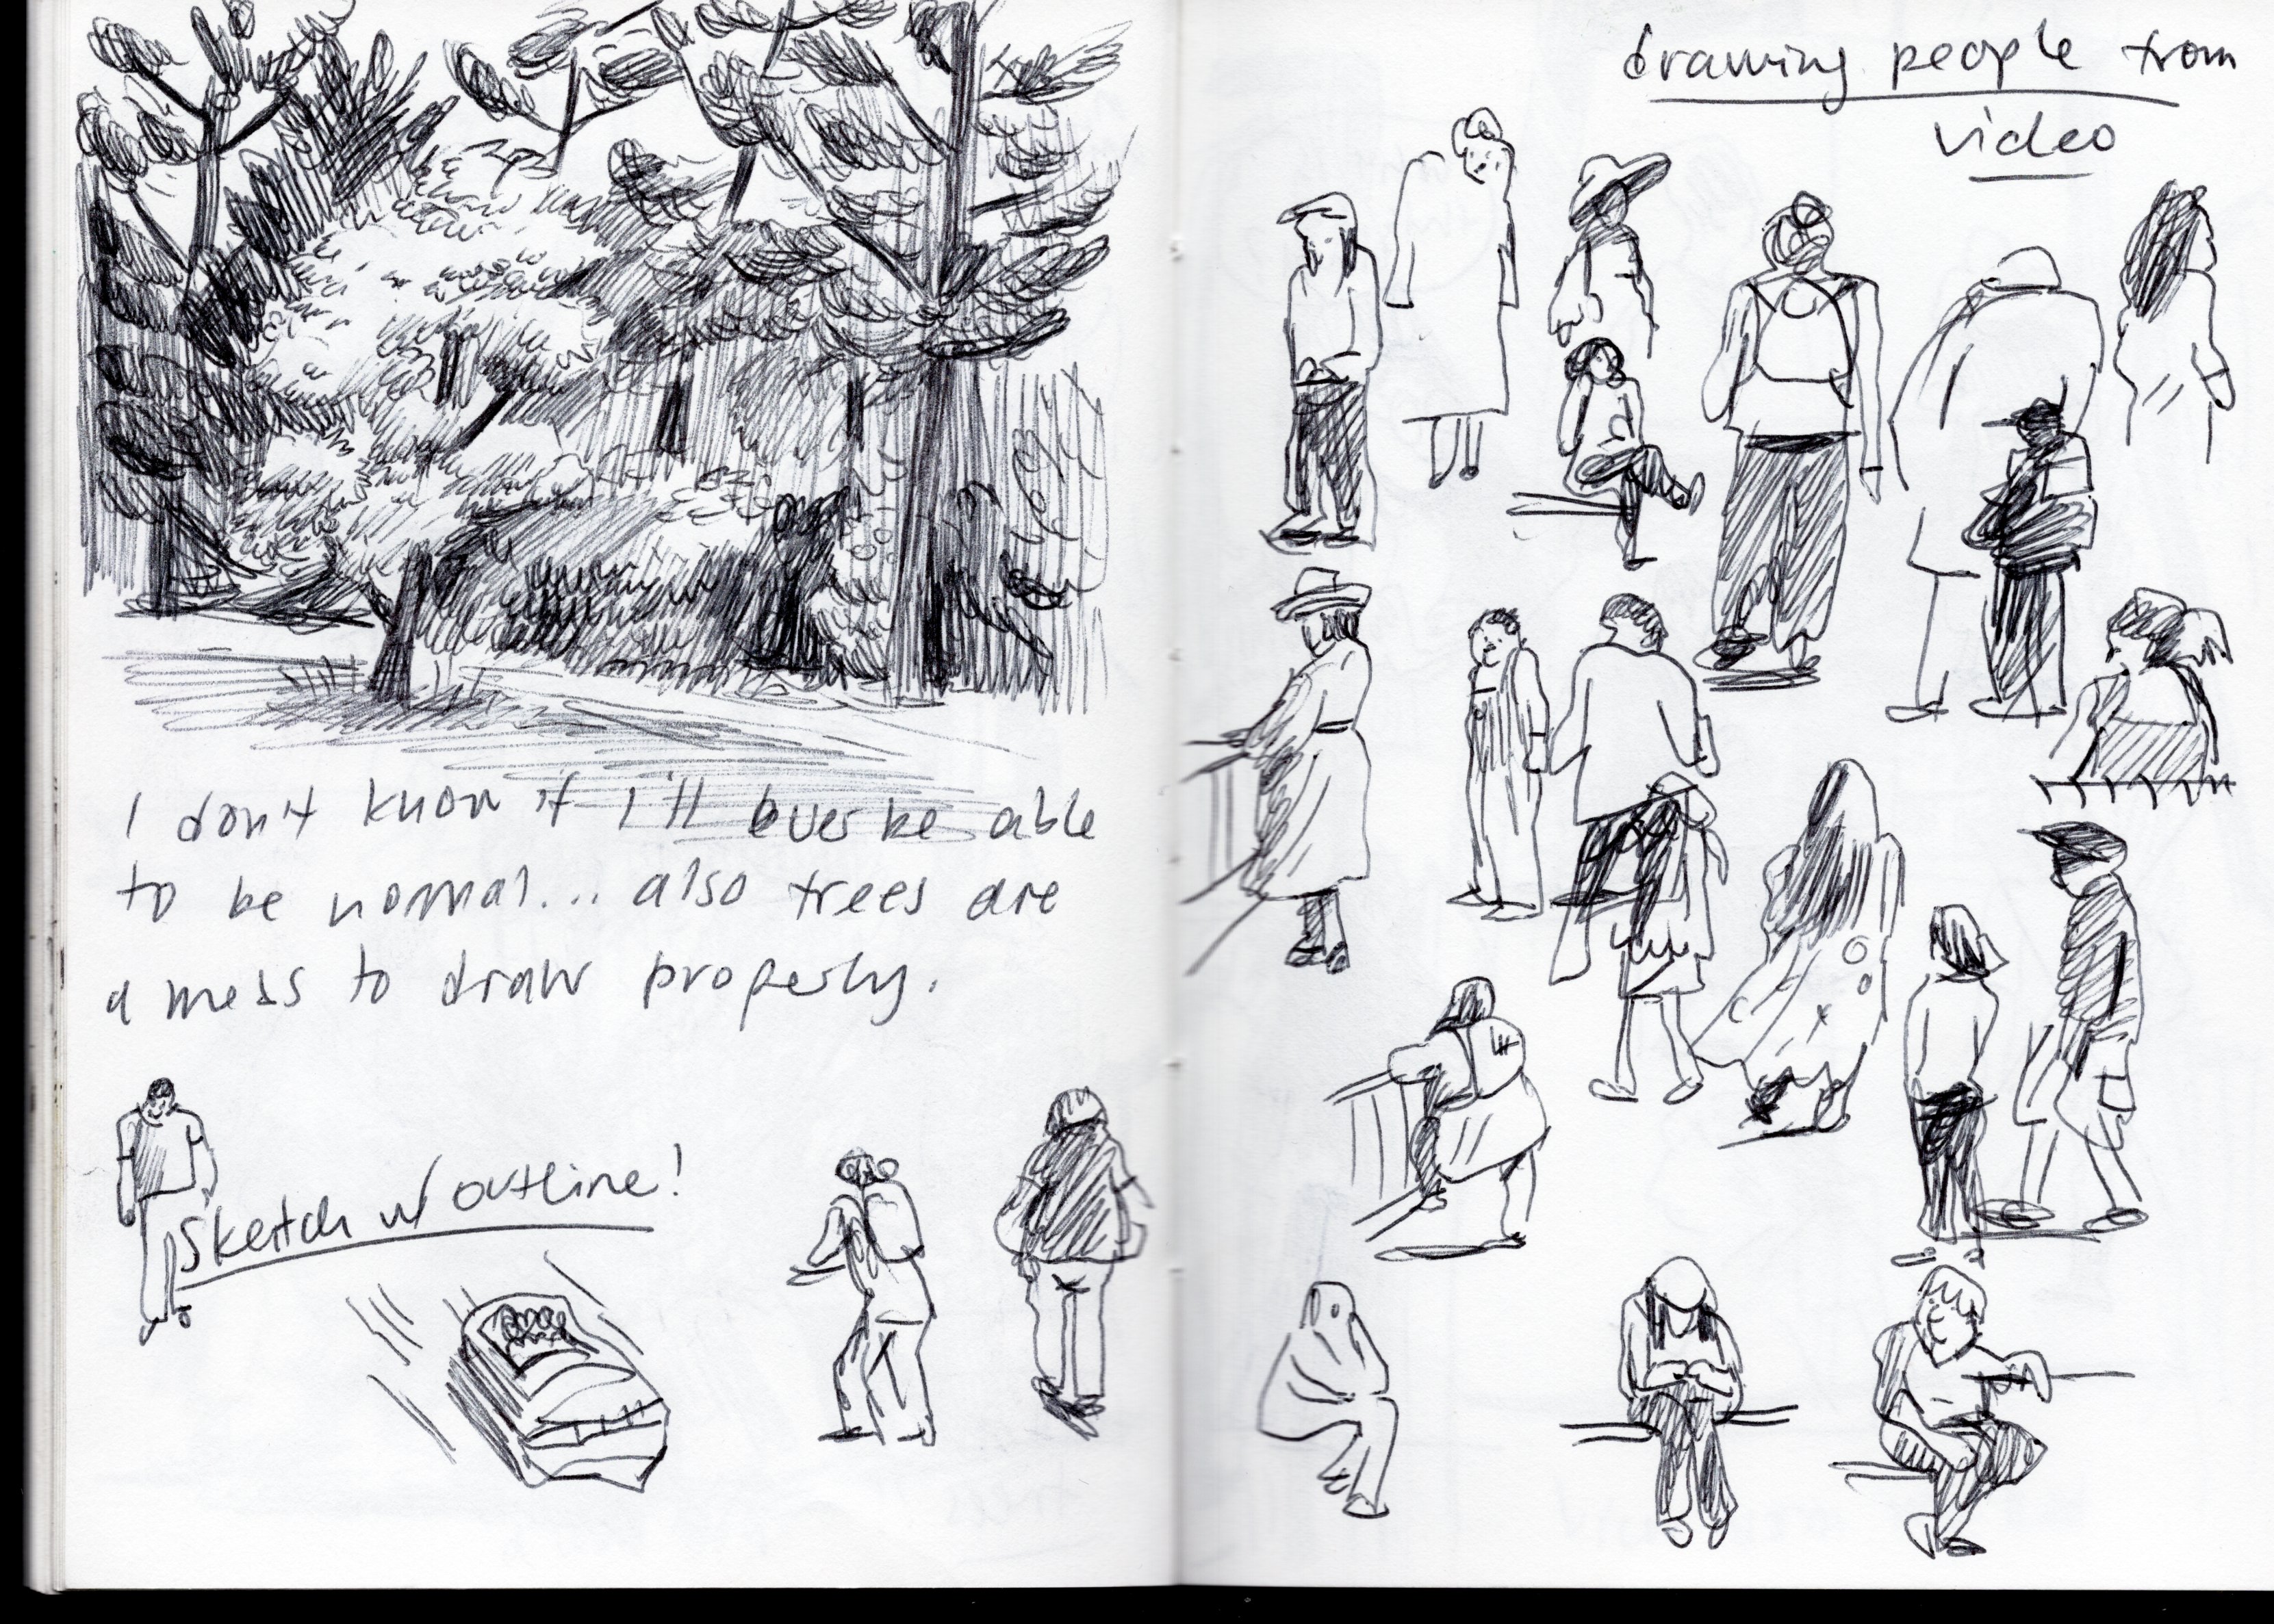 I don't know if i'll ever be able
to be normal... also trees are
a mess to draw properly.
Sketch w/ outline!
drawing people from
video